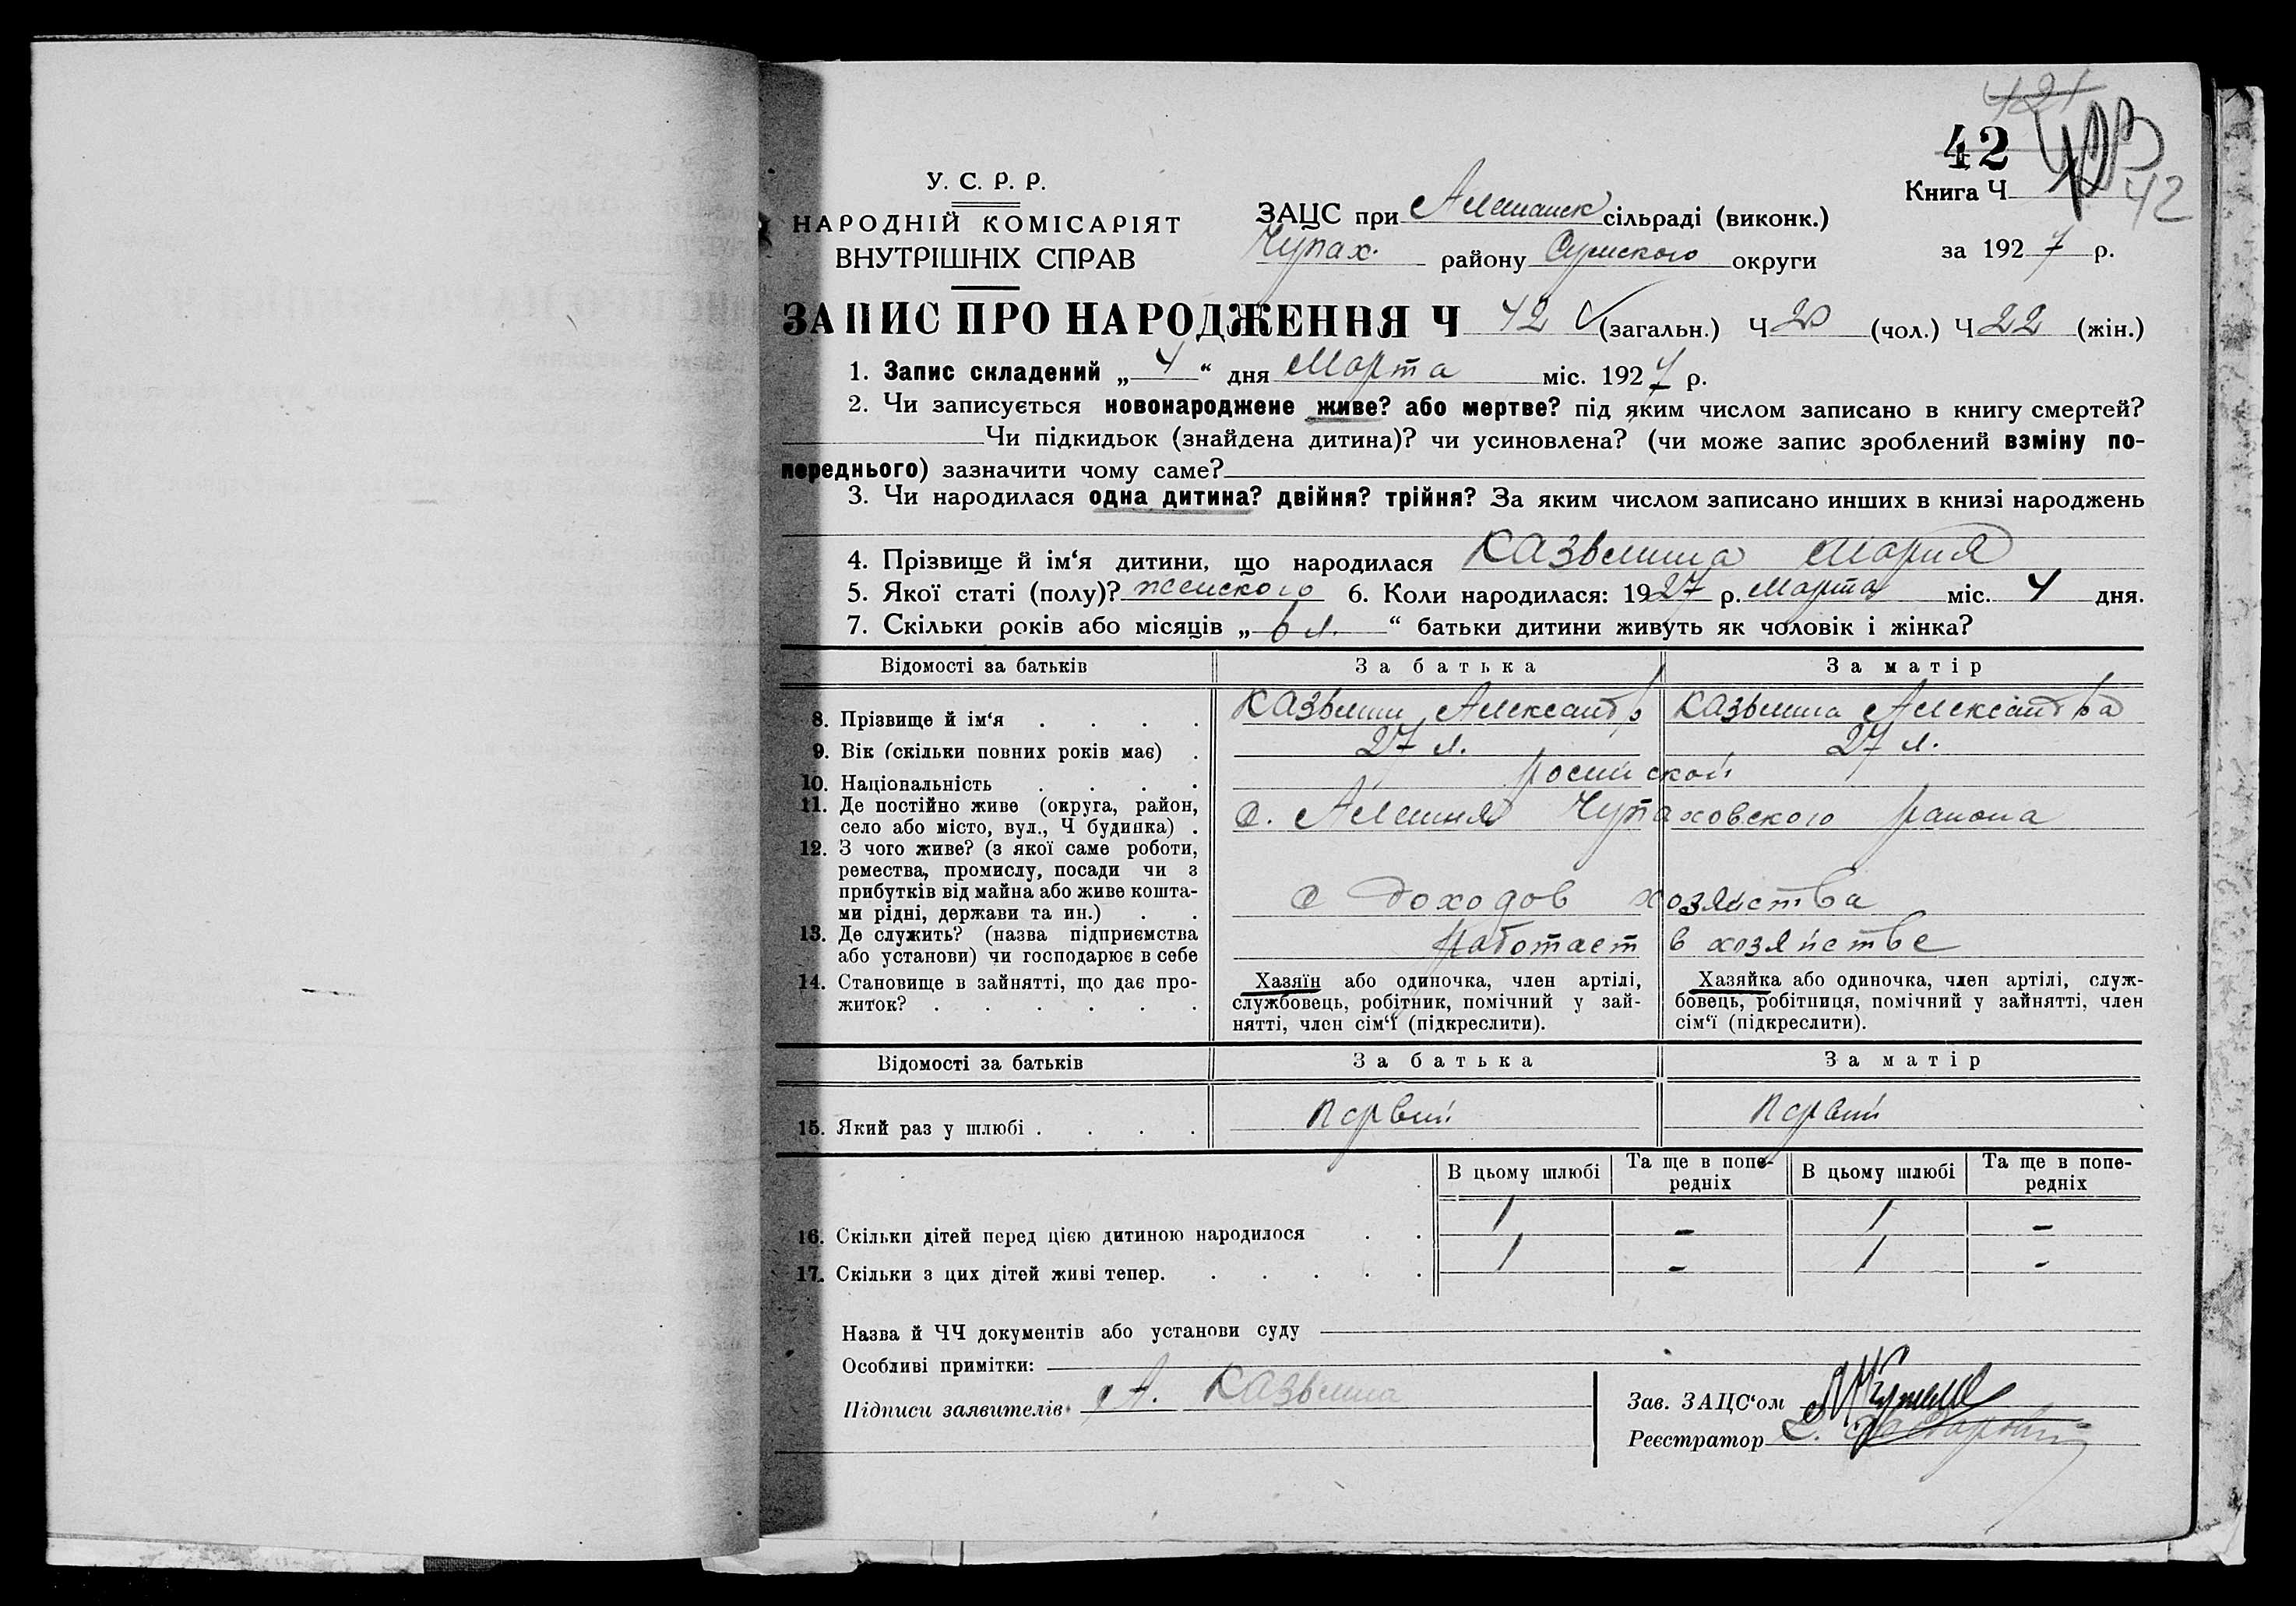 421
42 423
У. С. Р. Р.
Книга Ч 42
НАРОДНІЙ КОМІСАРІЯТ
ВНУТРІШНІХ СПРАВ
ЗАЦС при Алешанск сільраді (виконк.)
Чупах. району Сумского округи
за 1927 р.
ЗАПИС ПРО НАРОДЖЕННЯ Ч 42 (загальн.) Ч 20 (чол.) Ч 22 (жін.)
1. Запис складений „ 4 “ дня Марта міс. 1927 р.
2. Чи записується новонароджене живе? або мертве? під яким числом записано в книгу смертей?
Чи підкидьок (знайдена дитина)? чи усиновлена? (чи може запис зроблений взміну по-
переднього) зазначити чому саме?
3. Чи народилася одна дитина? двійня? трійня? За яким числом записано инших в книзі народжень
4. Прізвище й ім‘я дитини, що народилася Мария
5. Якої статі (полу)? женского 6. Коли народилася: 1927 р. Марта міс. 4 дня.
7. Скільки років або місяців „ 6 л. “ батьки дитини живуть як чоловік і жінка?
Відомості за батьків За батька За матір
8. Прізвище й ім‘я . . . . Александр Александра
9. Вік (скільки повних років має) . 27 л. 27 л.
10. Національність . . . . росийской
11. Де постійно живе (округа, район,
село або місто, вул., Ч будинка) . с. Алешня Чупаховского района
12. З чого живе? (з якої саме роботи,
ремества, промислу, посади чи з
прибутків від майна або живе кошта-
ми рідні, держави та ин.) . . С доходов хозяйства
13. Де служить? (назва підприємства
або установи) чи господарює в себе работает в хозяйстве
14. Становище в зайнятті, що дає про-
житок? . . . . . .
Хазяїн або одиночка, член артілі,
службовець, робітник, помічний у зай-
нятті, член сім‘ї (підкреслити).
Хазяйка або одиночка, член артілі, служ-
бовець, робітниця, помічний у зайнятті, член
сім‘ї (підкреслити).
Відомості за батьків За батька За матір
15. Який раз у шлюбі . . . . первий первий
В цьому шлюбі Та ще в попе-
редніх В цьому шлюбі Та ще в попе-
редніх
16. Скільки дітей перед цією дитиною народилося . . 1 - 1 -
17. Скільки з цих дітей живі тепер. . . . . . 1 - 1 -
Назва й ЧЧ документів або установи суду
Особливі примітки:
Підписи заявителів А.
Зав. ЗАЦС‘ом
Реєстратор